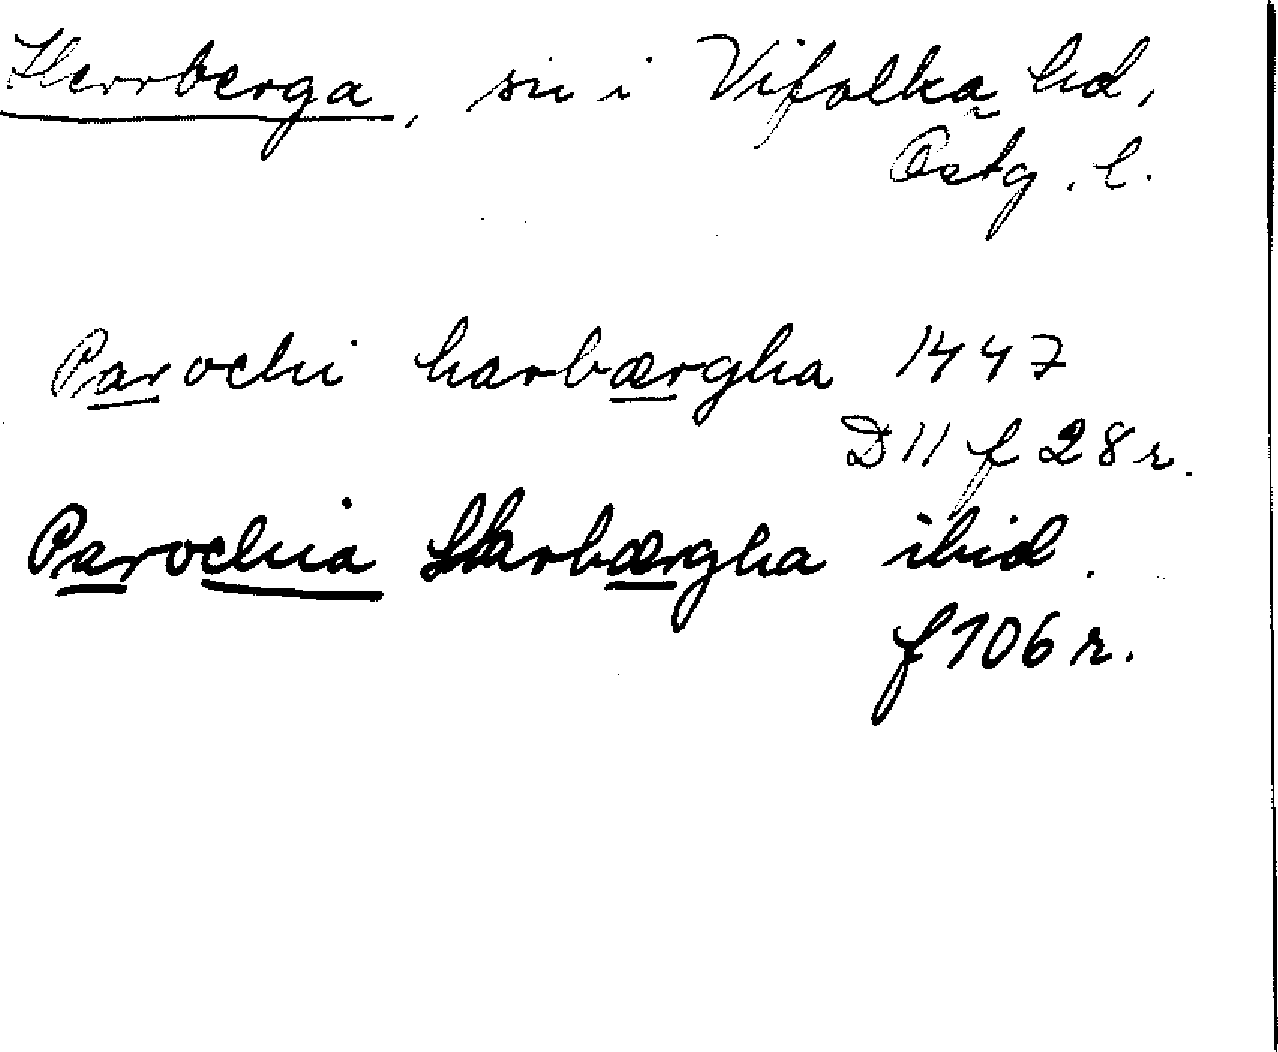 Herrberga, sn i Vifolka hd,
Östg. l.
Parochi harbærgha 1447
D 11 f 28 r.
Parochia Harbærgha ibid.
f 106 r.